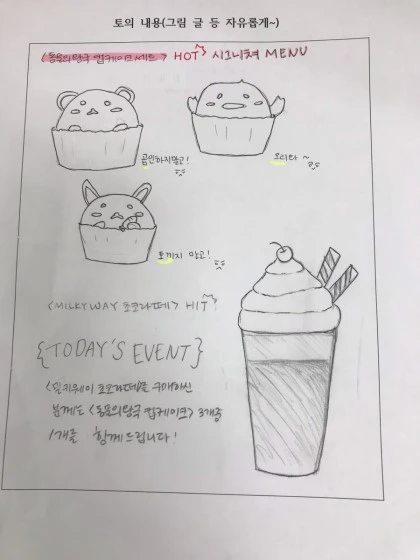 토의 내용(그림 글 등 자유롭게~)
<동물의왕국 컵케이크 세트> HOT 시그니쳐 MENU
곰민하지말고!
오리타~
토끼지 말고!
<MILKYWAY 초코라떼> HIT
{TODAY'S EVENT}
<밀키웨이 초코라떼>를 구매하신
분께는 <동물의왕국 컵케이크> 3개중
1개를 함께드립니다!